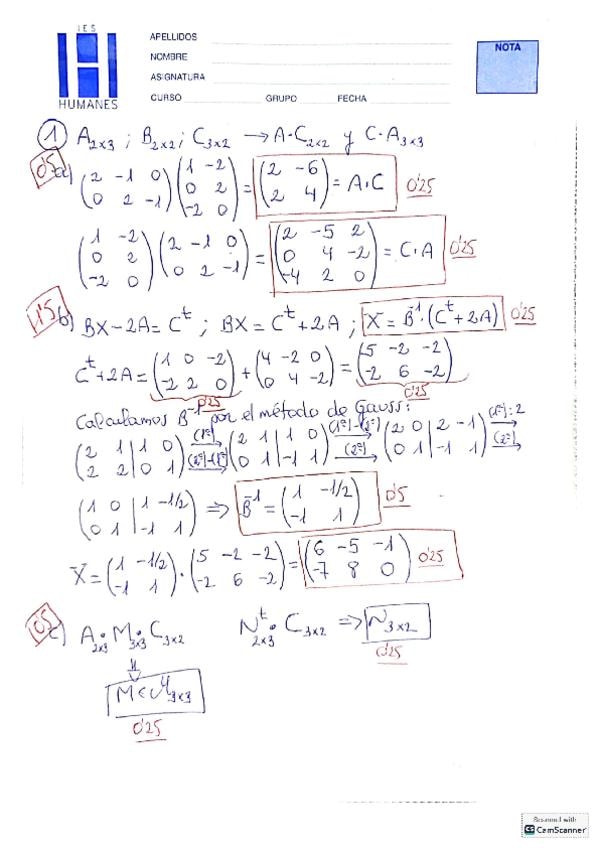 IES
HUMANES
APELLIDOS
NOMBRE
ASIGNATURA
CURSO GRUPO FECHA
NOTA
① A₂ₓ₃ ; B₂ₓ₂ ; C₃ₓ₂ → A·C₂ₓ₂ y C·A₃ₓ₃
0'5 a) (2 -1 0 / 0 2 -1) (1 -2 / 0 2 / -2 0) = (2 -6 / 2 4) = A·C 0'25
(1 -2 / 0 2 / -2 0) (2 -1 0 / 0 2 -1) = (2 -5 2 / 0 4 -2 / -4 2 0) = C·A 0'25
1'5 b) BX-2A = Cᵗ ; BX = Cᵗ+2A ; X = B⁻¹·(Cᵗ+2A) 0'25
Cᵗ+2A = (1 0 -2 / -2 2 0) + (4 -2 0 / 0 4 -2) = (5 -2 -2 / -2 6 -2)
0'25 0'25
Calculamos B⁻¹ por el método de Gauss:
(2 1 | 1 0 / 2 2 | 0 1) (1ª) (2ª)-(1ª) → (2 1 | 1 0 / 0 1 | -1 1) (1ª)-(2ª) (2ª) → (2 0 | 2 -1 / 0 1 | -1 1) (1ª):2 (2ª) →
(1 0 | 1 -1/2 / 0 1 | -1 1) ⇒ B⁻¹ = (1 -1/2 / -1 1) 0'5
X = (1 -1/2 / -1 1) · (5 -2 -2 / -2 6 -2) = (6 -5 -1 / -7 8 0) 0'25
0'5 c) A₂ₓ₃ · M₃ₓ₃ · C₃ₓ₂ Nᵗ₂ₓ₃ · C₃ₓ₂ ⇒ N₃ₓ₂
0'25
⇓
M ∈ M₃ₓ₃
0'25
Scanned with
CS CamScanner